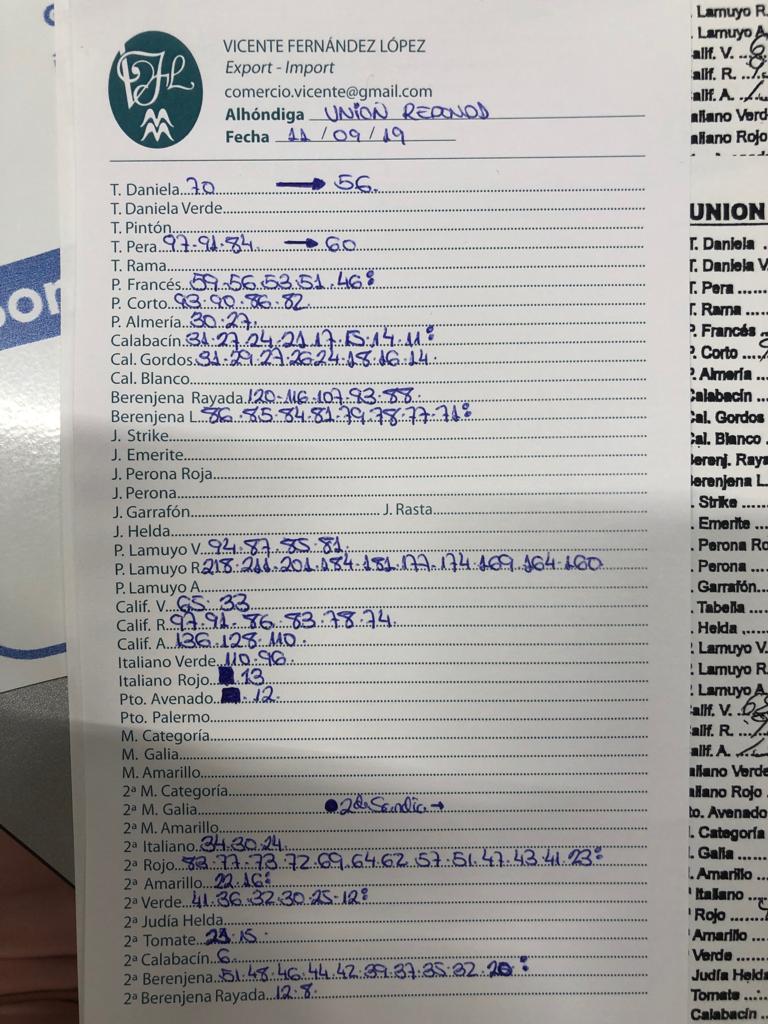 VICENTE FERNÁNDEZ LÓPEZ
Export - Import
comercio.vicente@gmail.com
Alhóndiga UNION REDONDO
Fecha 11/09/19
T. Daniela 70 → 56.
T. Daniela Verde
T. Pintón
T. Pera 97-91-84. → 60
T. Rama
P. Francés 59.56.53.51.46:
P. Corto 93.90.86.82.
P. Almería 30-27.
Calabacín 31.27.24.21.17.15.14.11:
Cal. Gordos 31.29.27.26.24.18.16.14.
Cal. Blanco
Berenjena Rayada 120-116.107.93.88.
Berenjena L. 86.85.84.81.79.78.77.71:
J. Strike
J. Emerite
J. Perona Roja
J. Perona
J. Garrafón J. Rasta
J. Helda
P. Lamuyo V. 94.87.85.81.
P. Lamuyo R. 218.211.201.184.181.177.174.169.164.160
P. Lamuyo A.
Calif. V. 65.33
Calif. R. 97.91.86.83.78.74.
Calif. A. 136.128.110.
Italiano Verde 110-96
Italiano Rojo 13
Pto. Avenado 12.
Pto. Palermo
M. Categoría
M. Galia
M. Amarillo
2ª M. Categoría
2ª M. Galia 2ª Sandia →
2ª M. Amarillo
2ª Italiano 34.30.24.
2ª Rojo 83.77.73.72.69.64.62.57.51.47.43.41.23:
2ª Amarillo 22.16:
2ª Verde 41.36.32.30.25-12:
2ª Judía Helda
2ª Tomate 15.
2ª Calabacín 6.
2ª Berenjena 51.48.46.44.42.39.37.35.32.20:
2ª Berenjena Rayada 12.8.
Lamuyo R.
Lamuyo A.
alif. V.
alif. R.
alif. A.
aliano Verd
aliano Rojo
UNION
T. Daniela
T. Daniela V
T. Pera
T. Rama
P. Francés
P. Corto
P. Almería
Calabacín
Cal. Gordos
Cal. Blanco
Berenj. Raya
Berenjena L.
. Strike
. Emerite
. Perona Ro
. Perona
. Garrafón
. Tabella
. Helda
. Lamuyo V.
. Lamuyo R.
. Lamuyo A
alif. V.
alif. R.
alif. A.
aliano Verde
aliano Rojo
to. Avenado
. Categoría
. Galia
. Amarillo
Italiano
Rojo
Amarillo
Verde
Judía Helda
Tomate
Calabacín